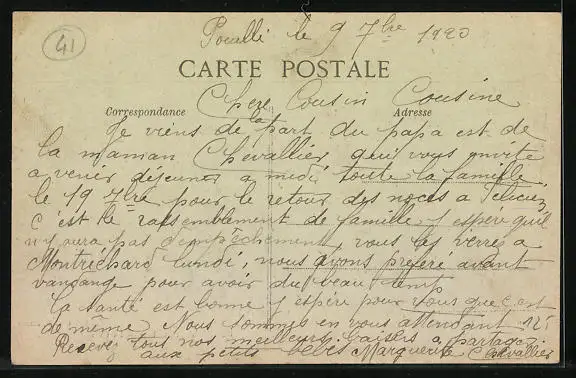 41
Pouillé le 9 7bre 1920
CARTE POSTALE
Correspondance
Adresse
Chere Cousin Cousine
Je viens de la part du papa est de
la maman Chevallier qui vous invite
a venir déjeuner a midi toute la famille
le 19 7bre pour le retour des noces a
c'est le rassemblement de famille j'espere qu'il
n'y aura pas d'empêchement, vous les verrés a
Montrichard lundi, nous avons preferé avant
vandange pour avoir du beau temp
la santé est bonne j'espère pour vous que c'est
de même Nous sommes en vous attendant
Recevez tous nos meilleurs baisers a partager
aux petits bébés Marguerite Chevallier